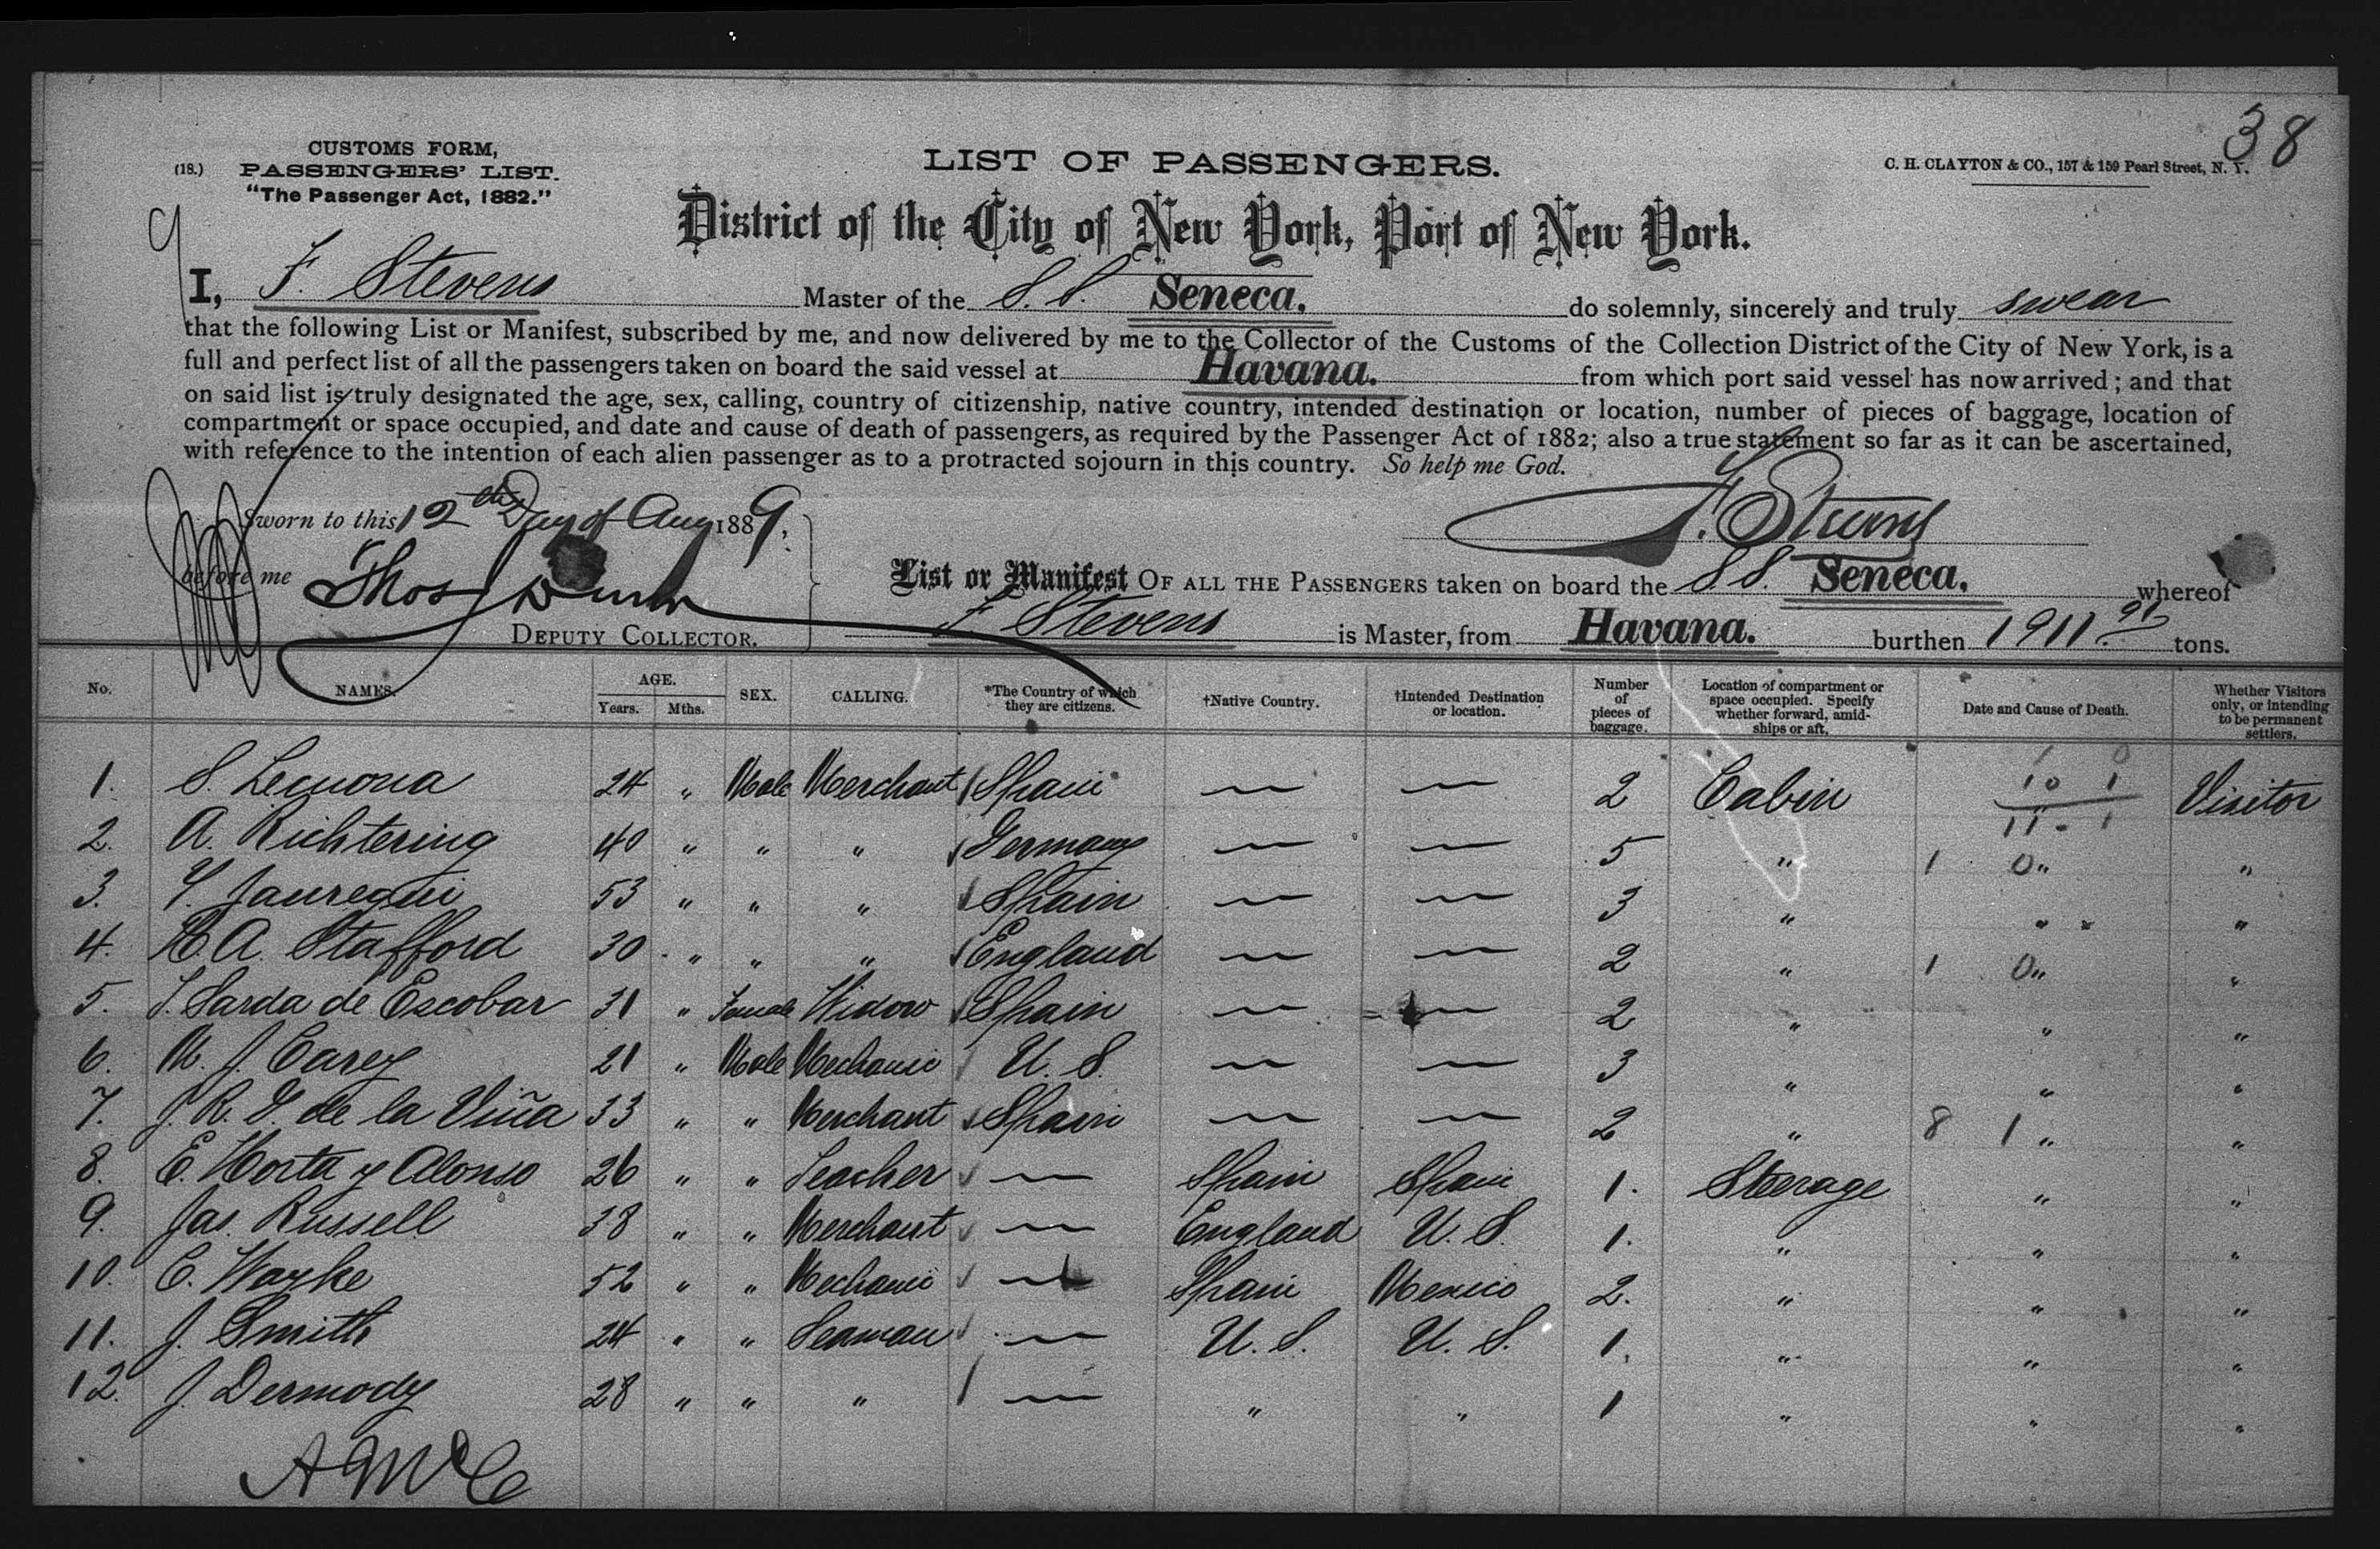 38
CUSTOMS FORM,
(18.) PASSENGERS' LIST.
"The Passenger Act, 1882."
LIST OF PASSENGERS.
C. H. CLAYTON & CO., 157 & 159 Pearl Street, N. Y.
District of the City of New York, Port of New York.
I, F. Stevens Master of the S.S. Seneca. do solemnly, sincerely and truly swear
that the following List or Manifest, subscribed by me, and now delivered by me to the Collector of the Customs of the Collection District of the City of New York, is a
full and perfect list of all the passengers taken on board the said vessel at Havana. from which port said vessel has now arrived; and that
on said list is truly designated the age, sex, calling, country of citizenship, native country, intended destination or location, number of pieces of baggage, location of
compartment or space occupied, and date and cause of death of passengers, as required by the Passenger Act of 1882; also a true statement so far as it can be ascertained,
with reference to the intention of each alien passenger as to a protracted sojourn in this country. So help me God.
Sworn to this 12th Day of Aug 1889,
F. Stevens
before me Thos J Dunn
DEPUTY COLLECTOR.
List or Manifest OF ALL THE PASSENGERS taken on board the S.S. Seneca. whereof
F Stevens is Master, from Havana. burthen 1911. 91 tons.
No. NAMES. AGE. Years. Mths. SEX. CALLING. *The Country of which they are citizens. †Native Country. †Intended Destination or location. Number of pieces of baggage. Location of compartment or space occupied. Specify whether forward, amidships or aft. Date and Cause of Death. Whether Visitors only, or intending to be permanent settlers.
1. S. Lemona 24 " Male Merchant Spain — — 2 Cabin 10 1 Visitor
11 - 1
2. A. Richtering 40 " " " Germany — — 5 " 1 0 " "
3. Y. Jauregui 53 " " " Spain — — 3 " " "
4. H. A. Stafford 30 " " " England — — 2 " 1 0 " "
5. S. Sarda de Escobar 31 " Female Widow Spain — — 2 " " "
6. M. J. Carey 21 " Male Mechanic U. S. — — 3 " " "
7. J. R. G. de la Viña 33 " " Merchant Spain — — 2 " 8 1 " "
8. E. Horta y Alonso 26 " " Teacher — Spain Spain 1. Steerage " "
9. Jas. Russell 38 " " Merchant — England U. S. 1. " " "
10. C. Warke 52 " " Mechanic — Spain Mexico 2. " " "
11. J. Smith 24 " " Seaman — U. S. U. S. 1. " " "
12. J. Dermody 28 " " " — " " 1 " " "
A McC